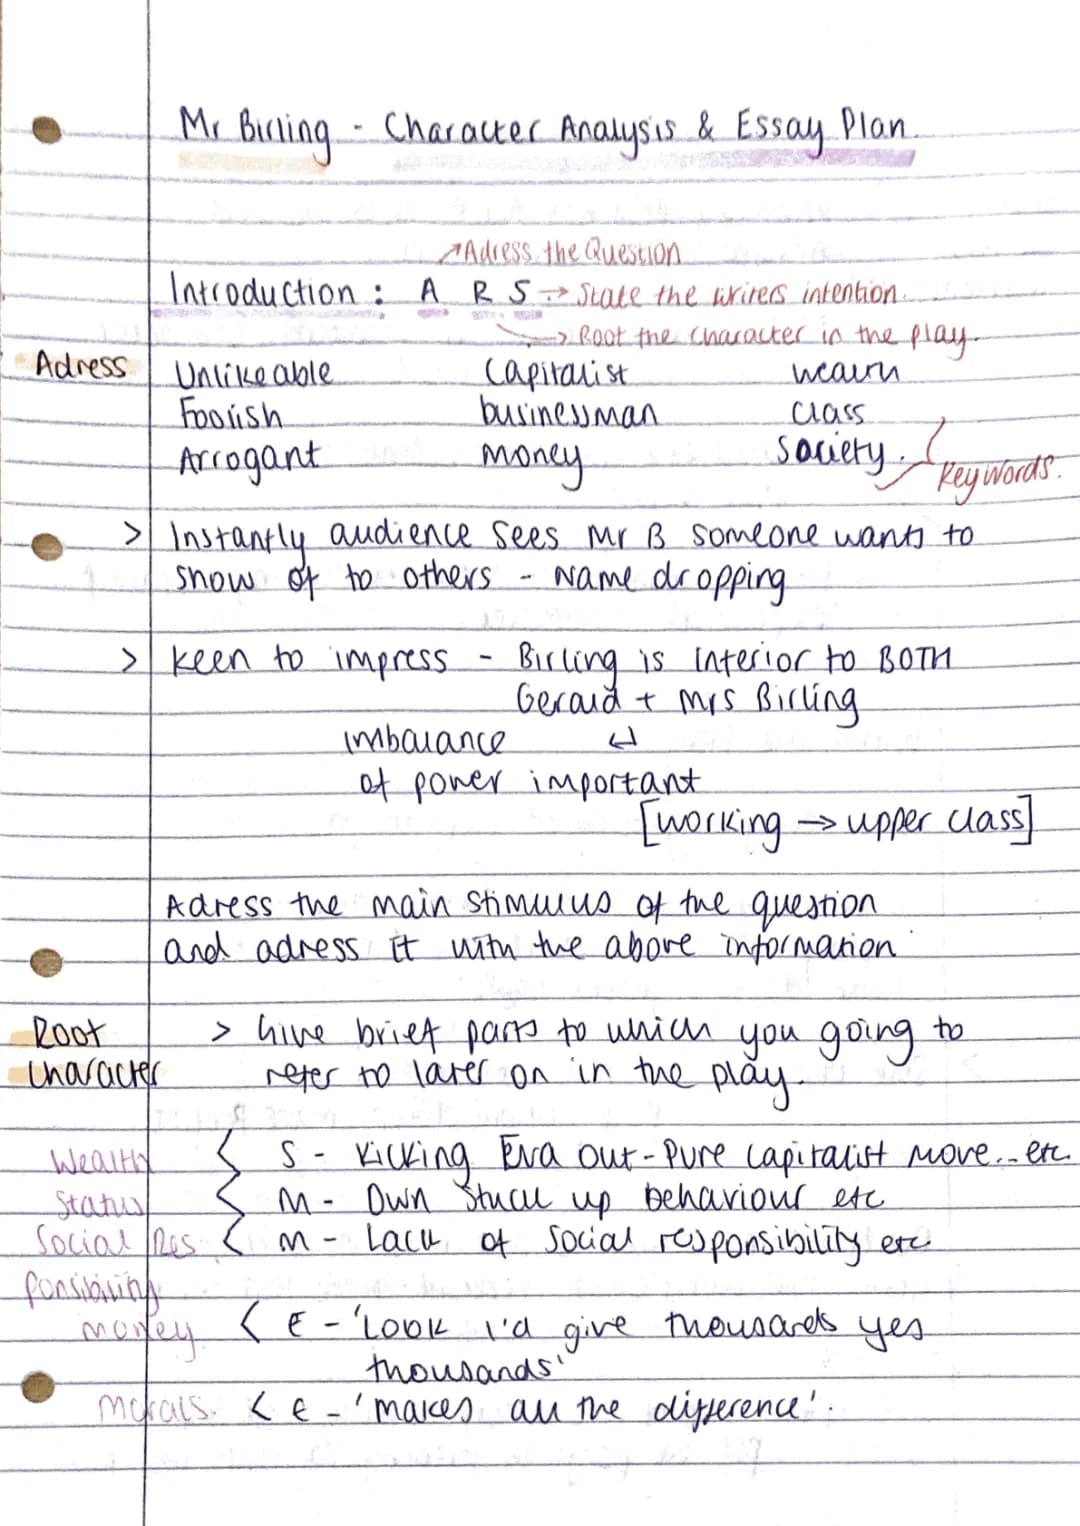 Mr Birling - Character Analysis & Essay Plan.
↗Adress the Question
Introduction : A R S → State the writers intention.
→ Root the character in the play.
Adress Unlikeable Capitalist wealth
Foolish businessman class
Arrogant money Society.
Key words.
> Instantly audience sees Mr B someone wants to
show of to others - Name dropping
> keen to impress - Birling is inferior to BOTH
Gerald + Mrs Birling
imbalance ↵
of power important
[working → upper class]
Adress the main stimulus of the question
and adress it with the above information
Root > Give brief parts to which you going to
Character refer to later on in the play.
Wealth { S - Kicking Eva out - Pure Capitalist Move... etc
Status { M - Own Stuck up behaviour etc
Social Res { M - Lack of Social responsibility etc
ponsibility
money < E - 'Look I'd give thousands yes
thousands'
Morals. < E - 'makes all the difference'.